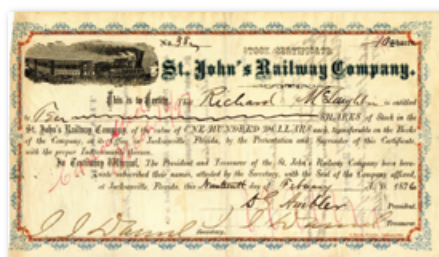 No. 38
STOCK CERTIFICATE
10 Shares
St. John's Railway Company.
This is to Certify, That Richard McLaughlin is entitled
to Ten SHARES of Stock in the
St. John's Railway Company, of the value of ONE HUNDRED DOLLARS each, transferable on the Books
of the Company, at its office in Jacksonville, Florida, by the Presentation and Surrender of this Certificate
with the proper Indorsements thereon.
In Testimony Whereof, The President and Treasurer of the St. John's Railway Company have here-
unto subscribed their names, attested by the Secretary, with the Seal of the Company affixed,
at Jacksonville, Florida, this day of February A.D. 1876
President.
J. J. Daniel
Secretary.
Treasurer